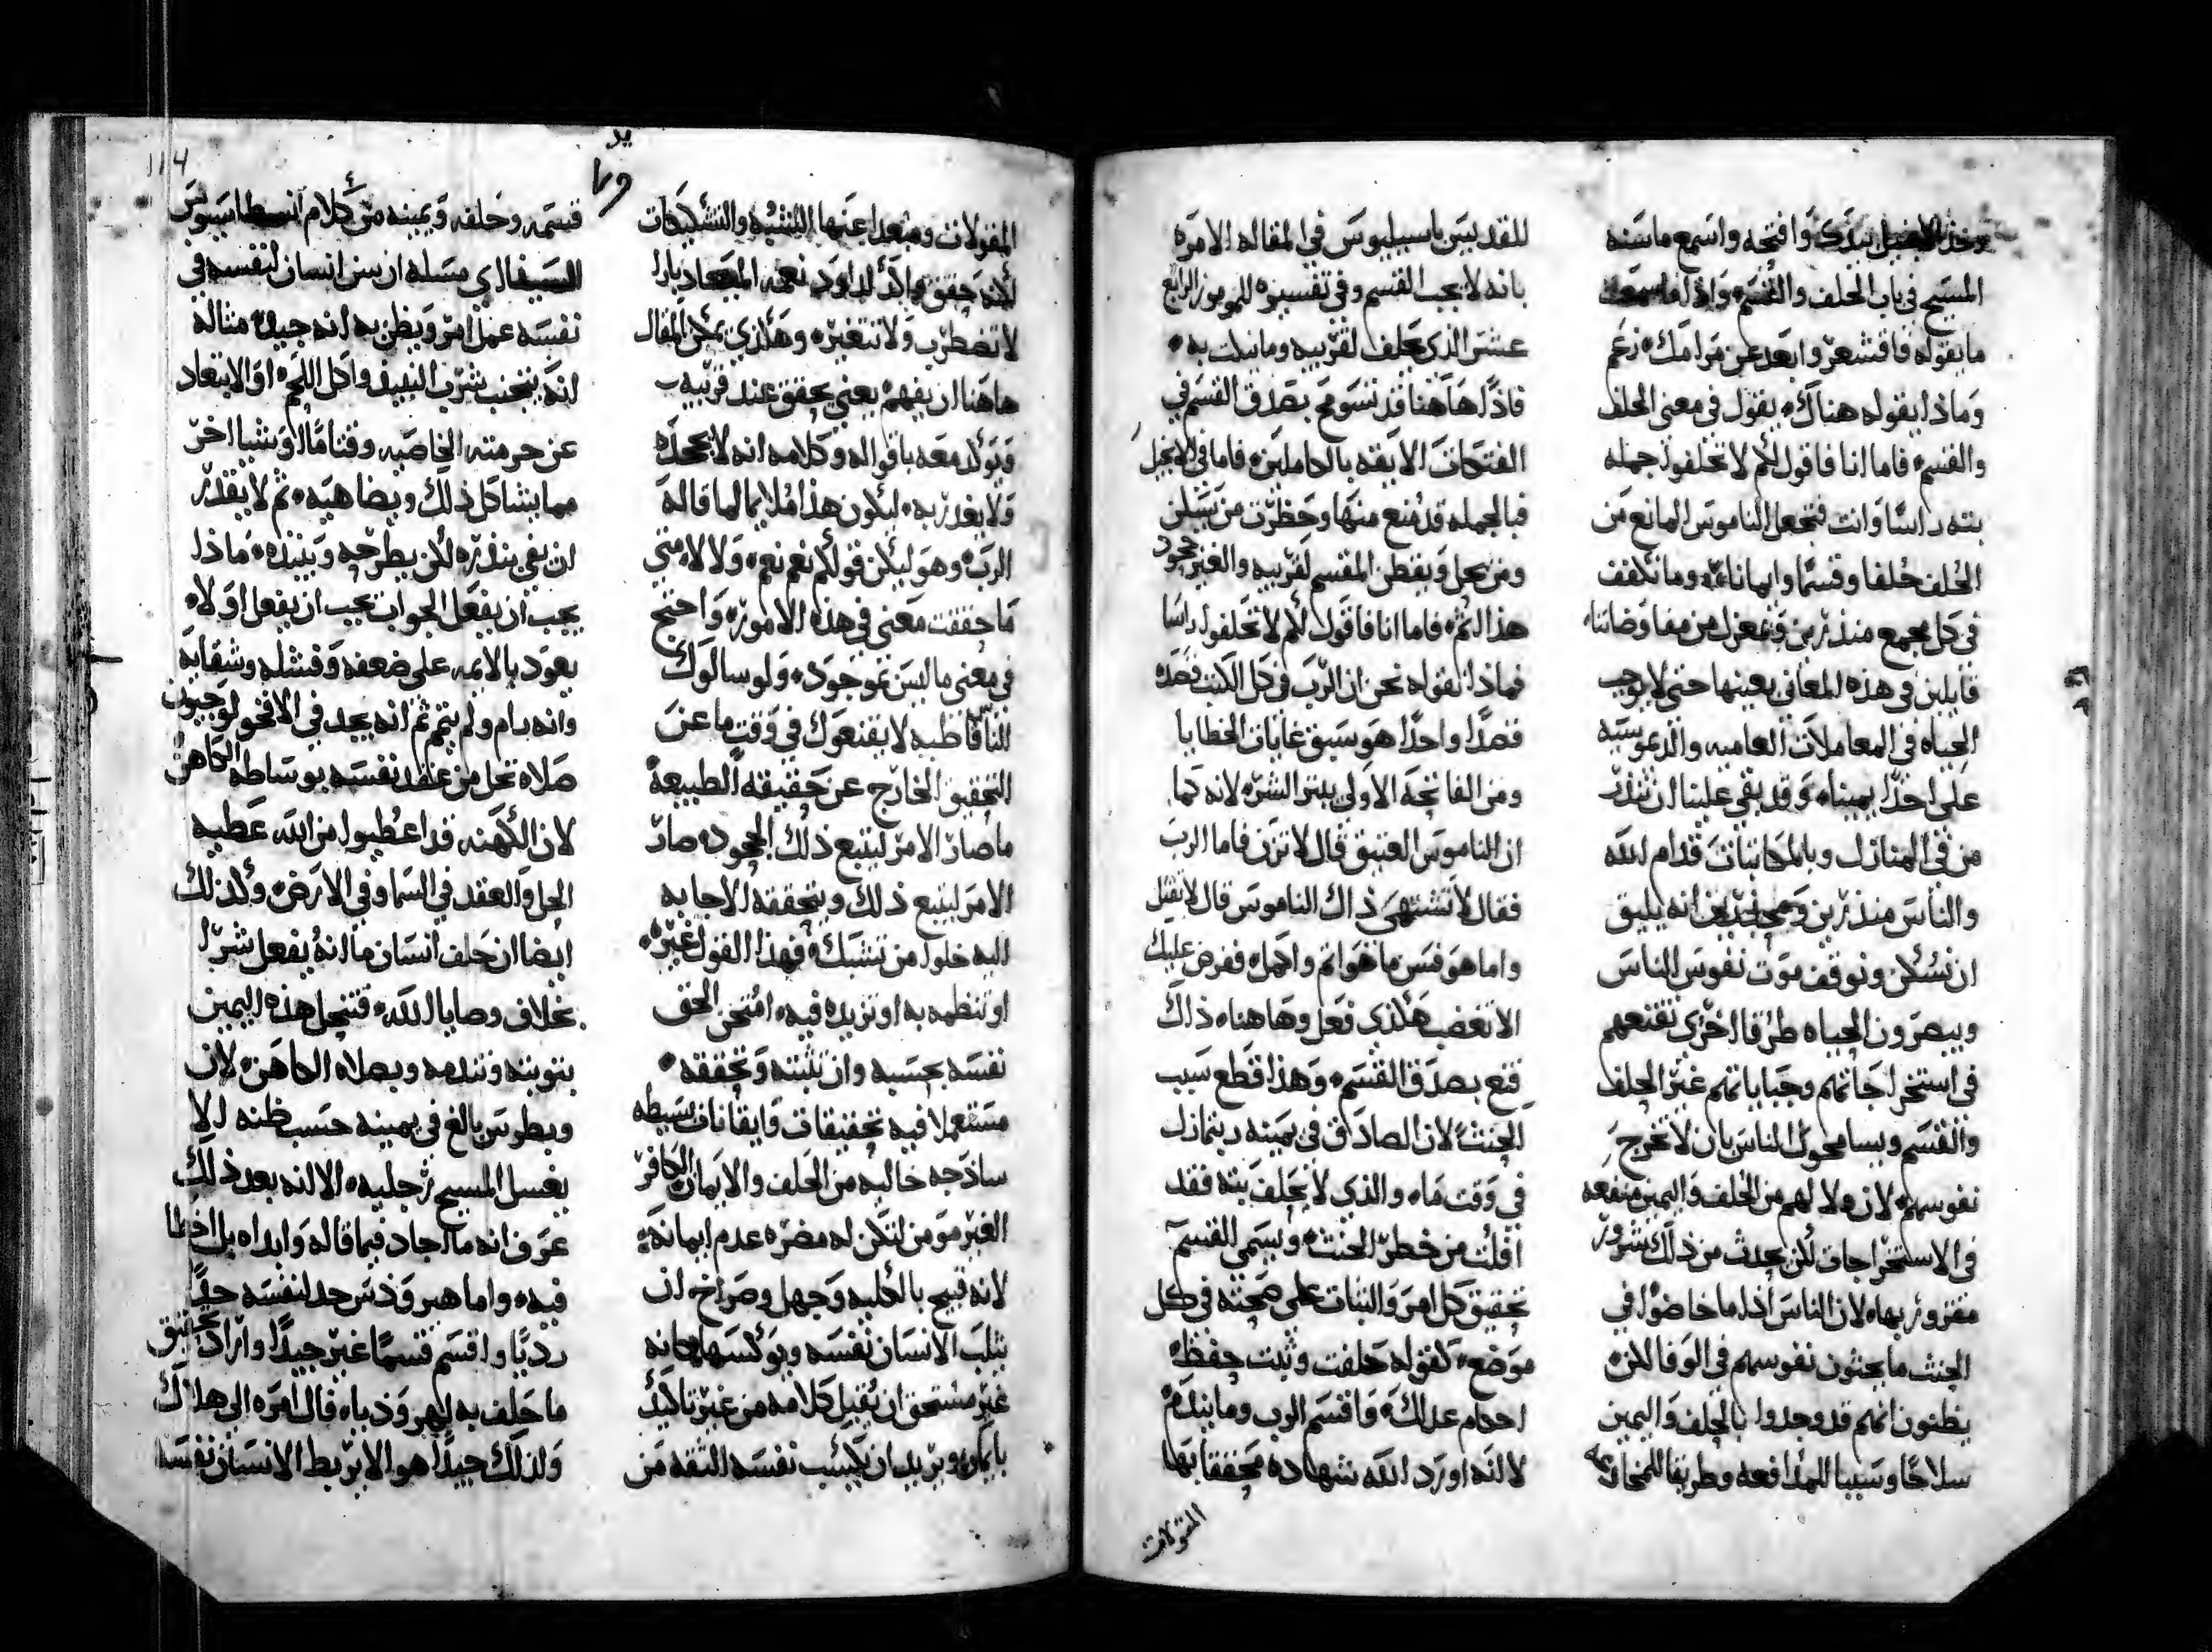 وخذ الانجيل بيدك وافتحه واسمع ماسنه
المسيح في باب الحلف والقسم واذا ماسمعت
مايقوله فاقشعر وابعد عن مرامك نعم
وماذا يقوله هناك يقول في معنى الحلف
والقسم فاما انا فاقول لكم لا تحلفوا جمله
بته راسًا وانت فتجعل الناموس المانع من
الحلف حلفا وقسمًا وايمانا وما نكفف
في كل مجمع منذرين وبمعزل من مفاوضاتنا
قايلين في هذه المعاني بعينها حتى لا يوجب
الحياه في المعاملات العاميه والديموسيه
على احدًا يمينا وقد بقي علينا ان ننذر
من في المنازل وبالمكاتبات قدام الله
والناس منذرين انه يليق
ان نسكن ونوقف موت نفوس الناس
ويبصرون الحياه طرقا اخرى تقنعهم
في استخراجاتهم وجباياتهم غير الحلف
والقسم ويسامحوا الناس بان لا تخرج
نفوسهم لان ولا لهم من الحلف واليمين منفعه
في الاستخراجات لكن يحدث من ذلك شرور
مقزور بها لان الناس اذا ماخاضوا في
الحنث مايحثون نفوسهم في الوفا لكن
يظنون انهم قد وجدوا بالحلف واليمين
سلاحًا وسببا للمدافعه وطريقا للمخادعه
للقديس باسيليوس في المقاله الامره
بانه لا يجب القسم وفي تفسيره للمزمور الرابع
عشر الذي يحلف لقريبه وماينكث به
فاذًا هاهنا قد نسومح بصدق القسم في
الفتوحات الا يقنه بالكاملين فاما في الانجيل
فبالجمله قد مُنع منها وحظرت من يسكن
ومن يحل ويفطن المقسم لقريبه والغير جحود
هذا الثم فاما انا فاقول لكم لا تحلفوا راسًا
فماذا نقوله نحن ان الرب في كل الكتب قصده
قصدًا واحدًا هو سبق غايات الخطايا
ومن الفاتحه الاولى يبتر الشر لانه كما
ان الناموس العتيق قال لا تزن فاما الرب
فقال لا تشتهي ذاك الناموس قال لا تقتل
واما هو فسن ماهو اتم واكمل ففرض عليك
الا تغضب هكذي فعل وهاهنا ذاك
قنع بصدق القسم وهذا قطع سبب
الحنث لان الصادق في يمينه ربما زل
في وقت ما والذي لا يحلف بته فقد
افلت من خطر الحنث ويسمى القسم
تحقيق كل امر والثبات على صحته في كل
موضع كقوله حلفت وثبت حفظ
احكام عدلك واقسم الرب وما يندم
لا لانه اورد الله شهاده محققا بها
المقولات
المقولات ومبعدا عنها التشبيه والتشكيكات
لانه حقق واكد لداود نعمه الميعاد بارا
لا تضطرب ولا تتغير وهكذي يمكن المقال
هاهنا ان يفهم يعني يحقق عند قريبه
ويوكد معه باقواله وكلامه انه لا يجحده
ولا يغدر به ليكون هذا ملايما لما قاله
الرب وهو ليكن قولكم نعم نعم ولا لا متى
ماحققت معنى في هذه الامور واحتج
في معنى ماليس موجود ولو سالوك
الناس قاطبه لا يقنعوك في وقت ما عن
التحقيق الخارج عن حقيقه الطبيعه
ماصار الامر ليتبع ذلك الجحود صار
الامر ليتبع ذلك ويتحققه الاجابه
اليه خلوا من تشبك فهذا القول غيره
او تنظمه به او تزيده فيه امتحن الحق
نفسه بحسبه وان تثبته وتحققه
مستعملا فيه تحقيقات وايقانات بسيطه
ساذجه خاليه من الحلف والايمان الكافر
الغير مومن لتكن له مضره عدم ايمانه
لانه قبيح بالكليه وجهل وصراخ ان
يثلب الانسان نفسه ويوكسها كانه
غير مستحق ان يُقبل كلامه من غير تاكيد
بايمان ويريد ان يكسب نفسه الثقه من
114
قسمه وحلفه ويمينه من كلام انسطاسيوس
السينالي مسله ان سن انسان لنفسه في
نفسه عمل امر ويظن به انه جيد مثاله
انه يتجنب شرب النبيذ واكل اللحم او الابتعاد
عن حرمته الخاصيه وقتا ما او شيا اخر
مما يشاكل ذلك ويضاهيه ثم لا يقدر
ان يفي بنذره لكن يطرحه وينبذه ماذا
يجب ان يفعل الجواب يجب ان يفعل اولا
يعود بالايمه على ضعفه وفشله وشقايه
وانه رام ولم يتم ثم انه يجد في الافخولوجيون
صلاه تحل من عقد نفسه بوساطه الكاهن
لان الكهنه قد اعُطيوا من الله عطيه
الحل والعقد في السما وفي الارض وكذلك
ايضا ان حلف انسان ما انه يفعل شرا
بخلاف وصايا الله فتنحل هذه اليمين
بتوبته وتندمه وبصلاه الكاهن لان
وبطرس بالغ في يمينه حسب ظنه الا
يغسل المسيح رجليه الا انه بعد ذلك
عرف انه مااجاد فيما قاله وابداه بل اخطا
فيه واما هيرودس حد لنفسه حدًا
رديًا واقسم قسمًا غير جيدًا واراد تحقيق
ماحلف به امره الى هلاك
ولذلك جيدًا هو الا يربط الانسان نفسه